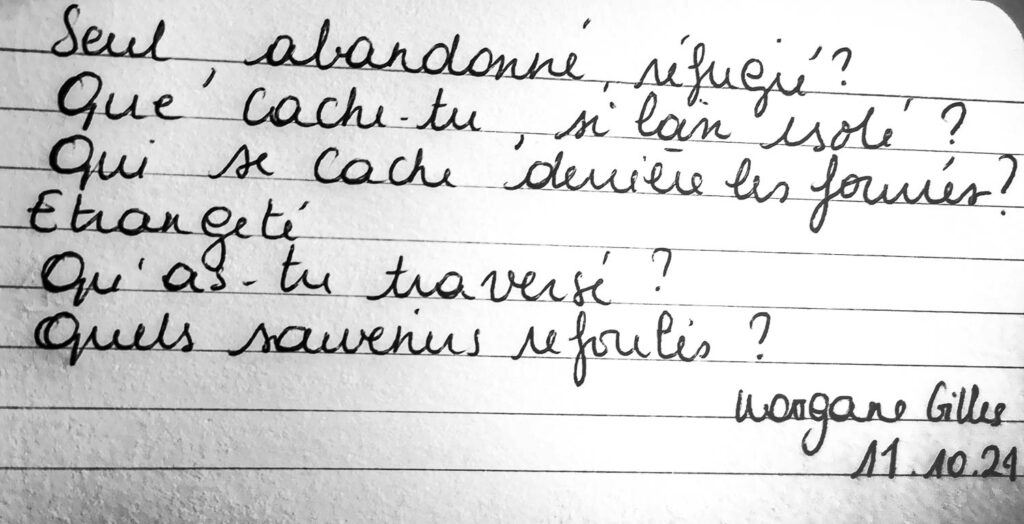 Seul, abandonné, réfugié ?
Que cache-tu, si loin isolé ?
Qui se cache derrière les fourrés ?
Etrangeté
Qu'as-tu traversé ?
Quels souvenirs refoulés ?
Morgane Gilles
11.10.24